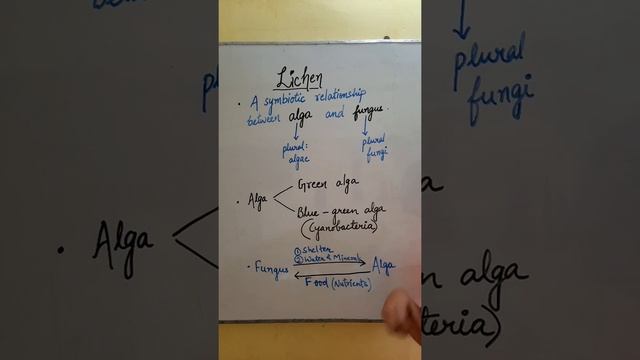 Lichen
• A symbiotic relationship
between alga and fungus.
plural:
algae
plural
fungi
• Alga
Green alga
Blue-green alga
(Cyanobacteria)
① Shelter
② Water & Mineral
• Fungus
Alga
Food (Nutrients)